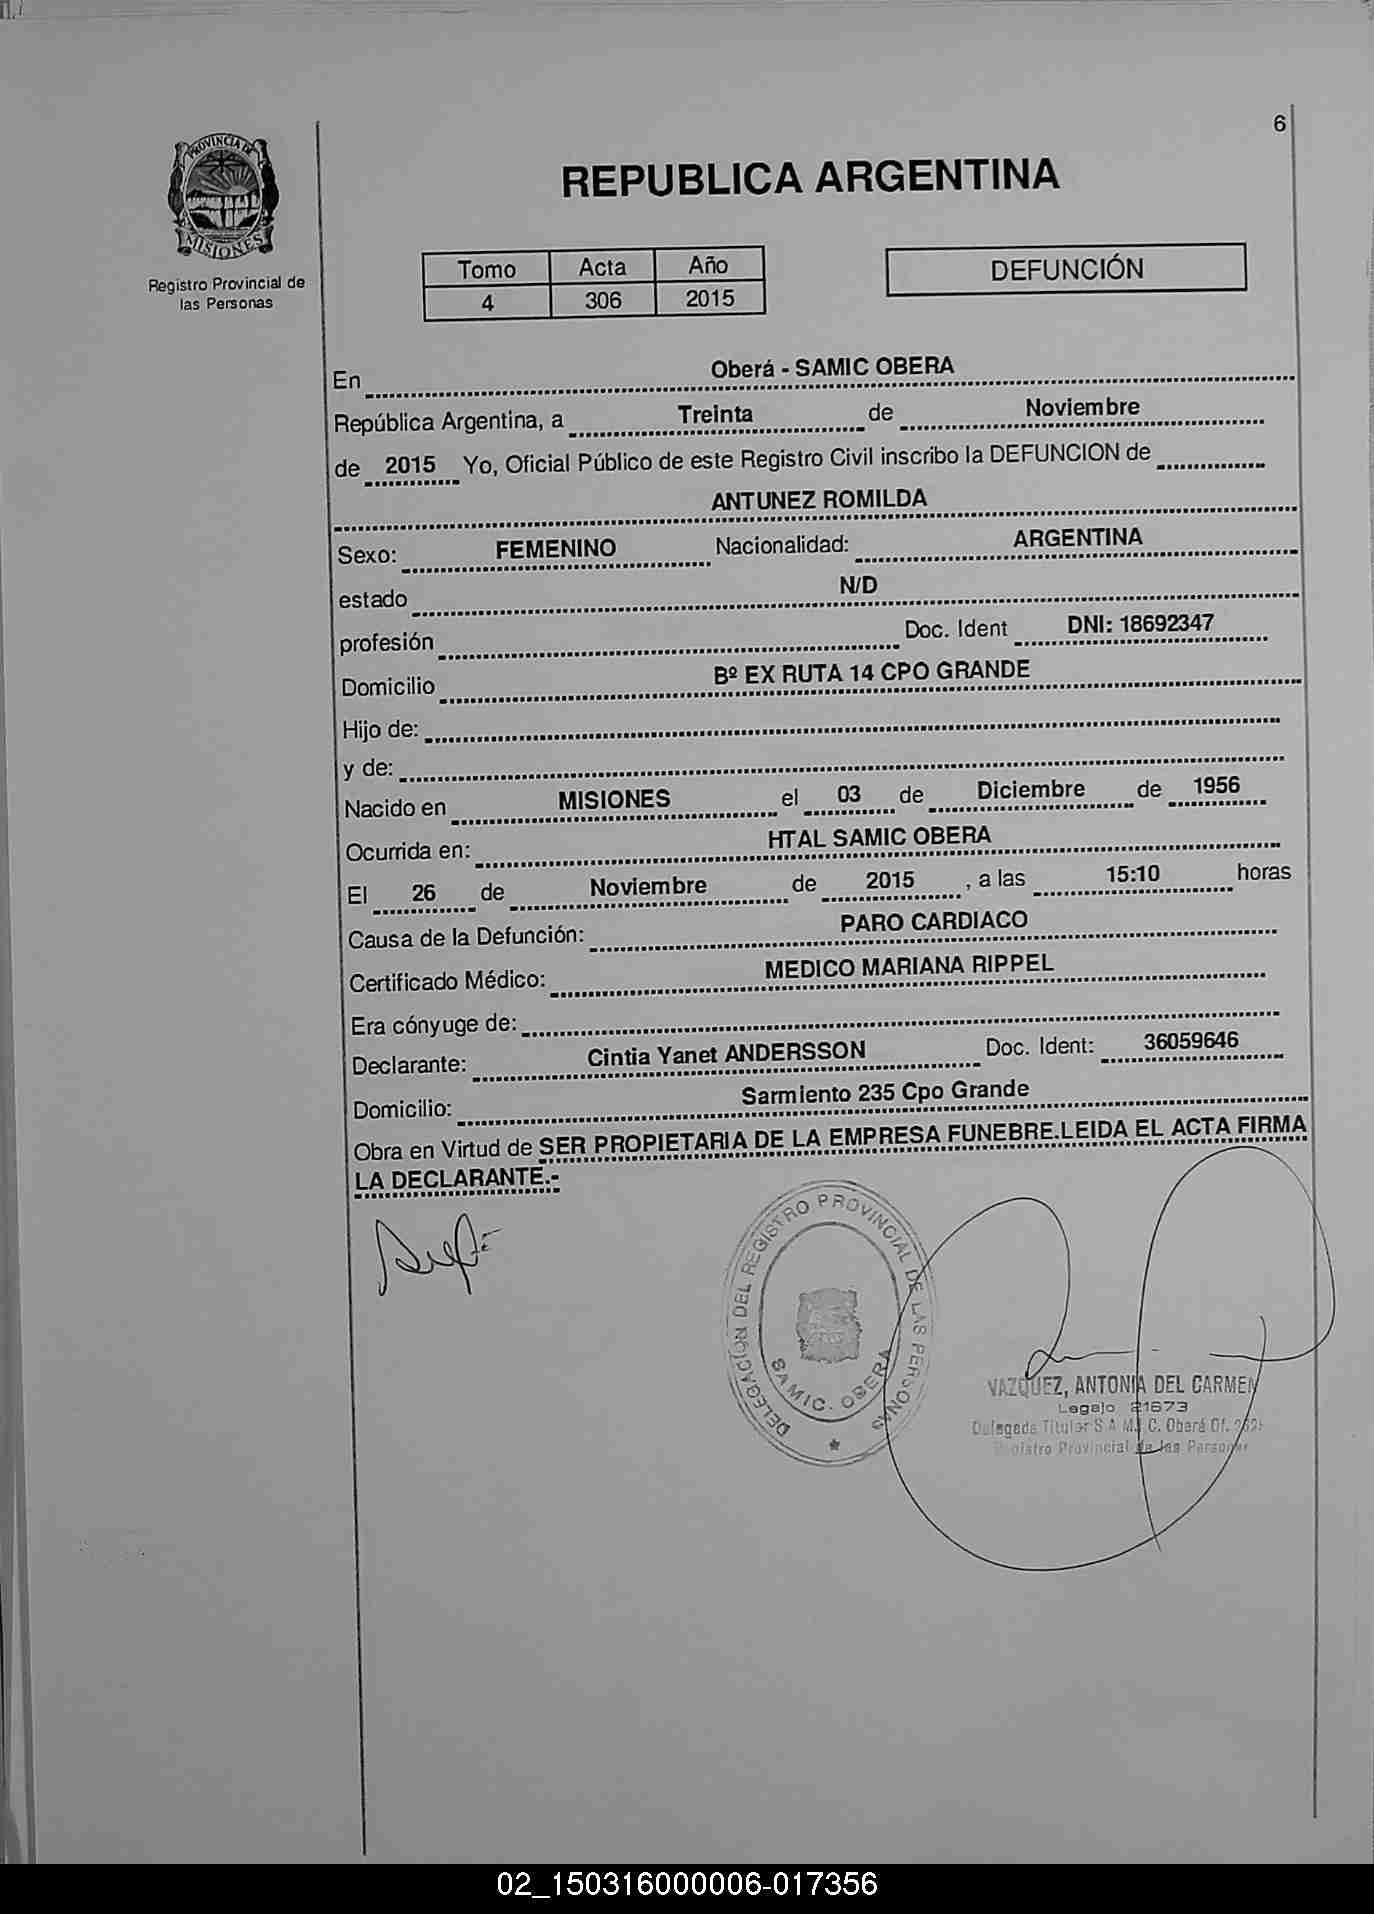 6
PROVINCIA DE
MISIONES
Registro Provincial de
las Personas
REPUBLICA ARGENTINA
Tomo Acta Año
4 306 2015
DEFUNCIÓN
En Oberá - SAMIC OBERA
República Argentina, a Treinta de Noviembre
de 2015 Yo, Oficial Público de este Registro Civil inscribo la DEFUNCION de
ANTUNEZ ROMILDA
Sexo: FEMENINO Nacionalidad: ARGENTINA
estado N/D
profesión Doc. Ident DNI: 18692347
Domicilio Bº EX RUTA 14 CPO GRANDE
Hijo de:
y de:
Nacido en MISIONES el 03 de Diciembre de 1956
Ocurrida en: HTAL SAMIC OBERA
El 26 de Noviembre de 2015 , a las 15:10 horas
Causa de la Defunción: PARO CARDIACO
Certificado Médico: MEDICO MARIANA RIPPEL
Era cónyuge de:
Declarante: Cintia Yanet ANDERSSON Doc. Ident: 36059646
Domicilio: Sarmiento 235 Cpo Grande
Obra en Virtud de SER PROPIETARIA DE LA EMPRESA FUNEBRE.LEIDA EL ACTA FIRMA
LA DECLARANTE.-
DELEGACION DEL REGISTRO PROVINCIAL DE LAS PERSONAS
SAMIC. OBERA
VAZQUEZ, ANTONIA DEL CARMEN
Legajo 21673
Delegada Titular S.A.M.I.C. Oberá Of.
Registro Provincial de las Personas
02_150316000006-017356